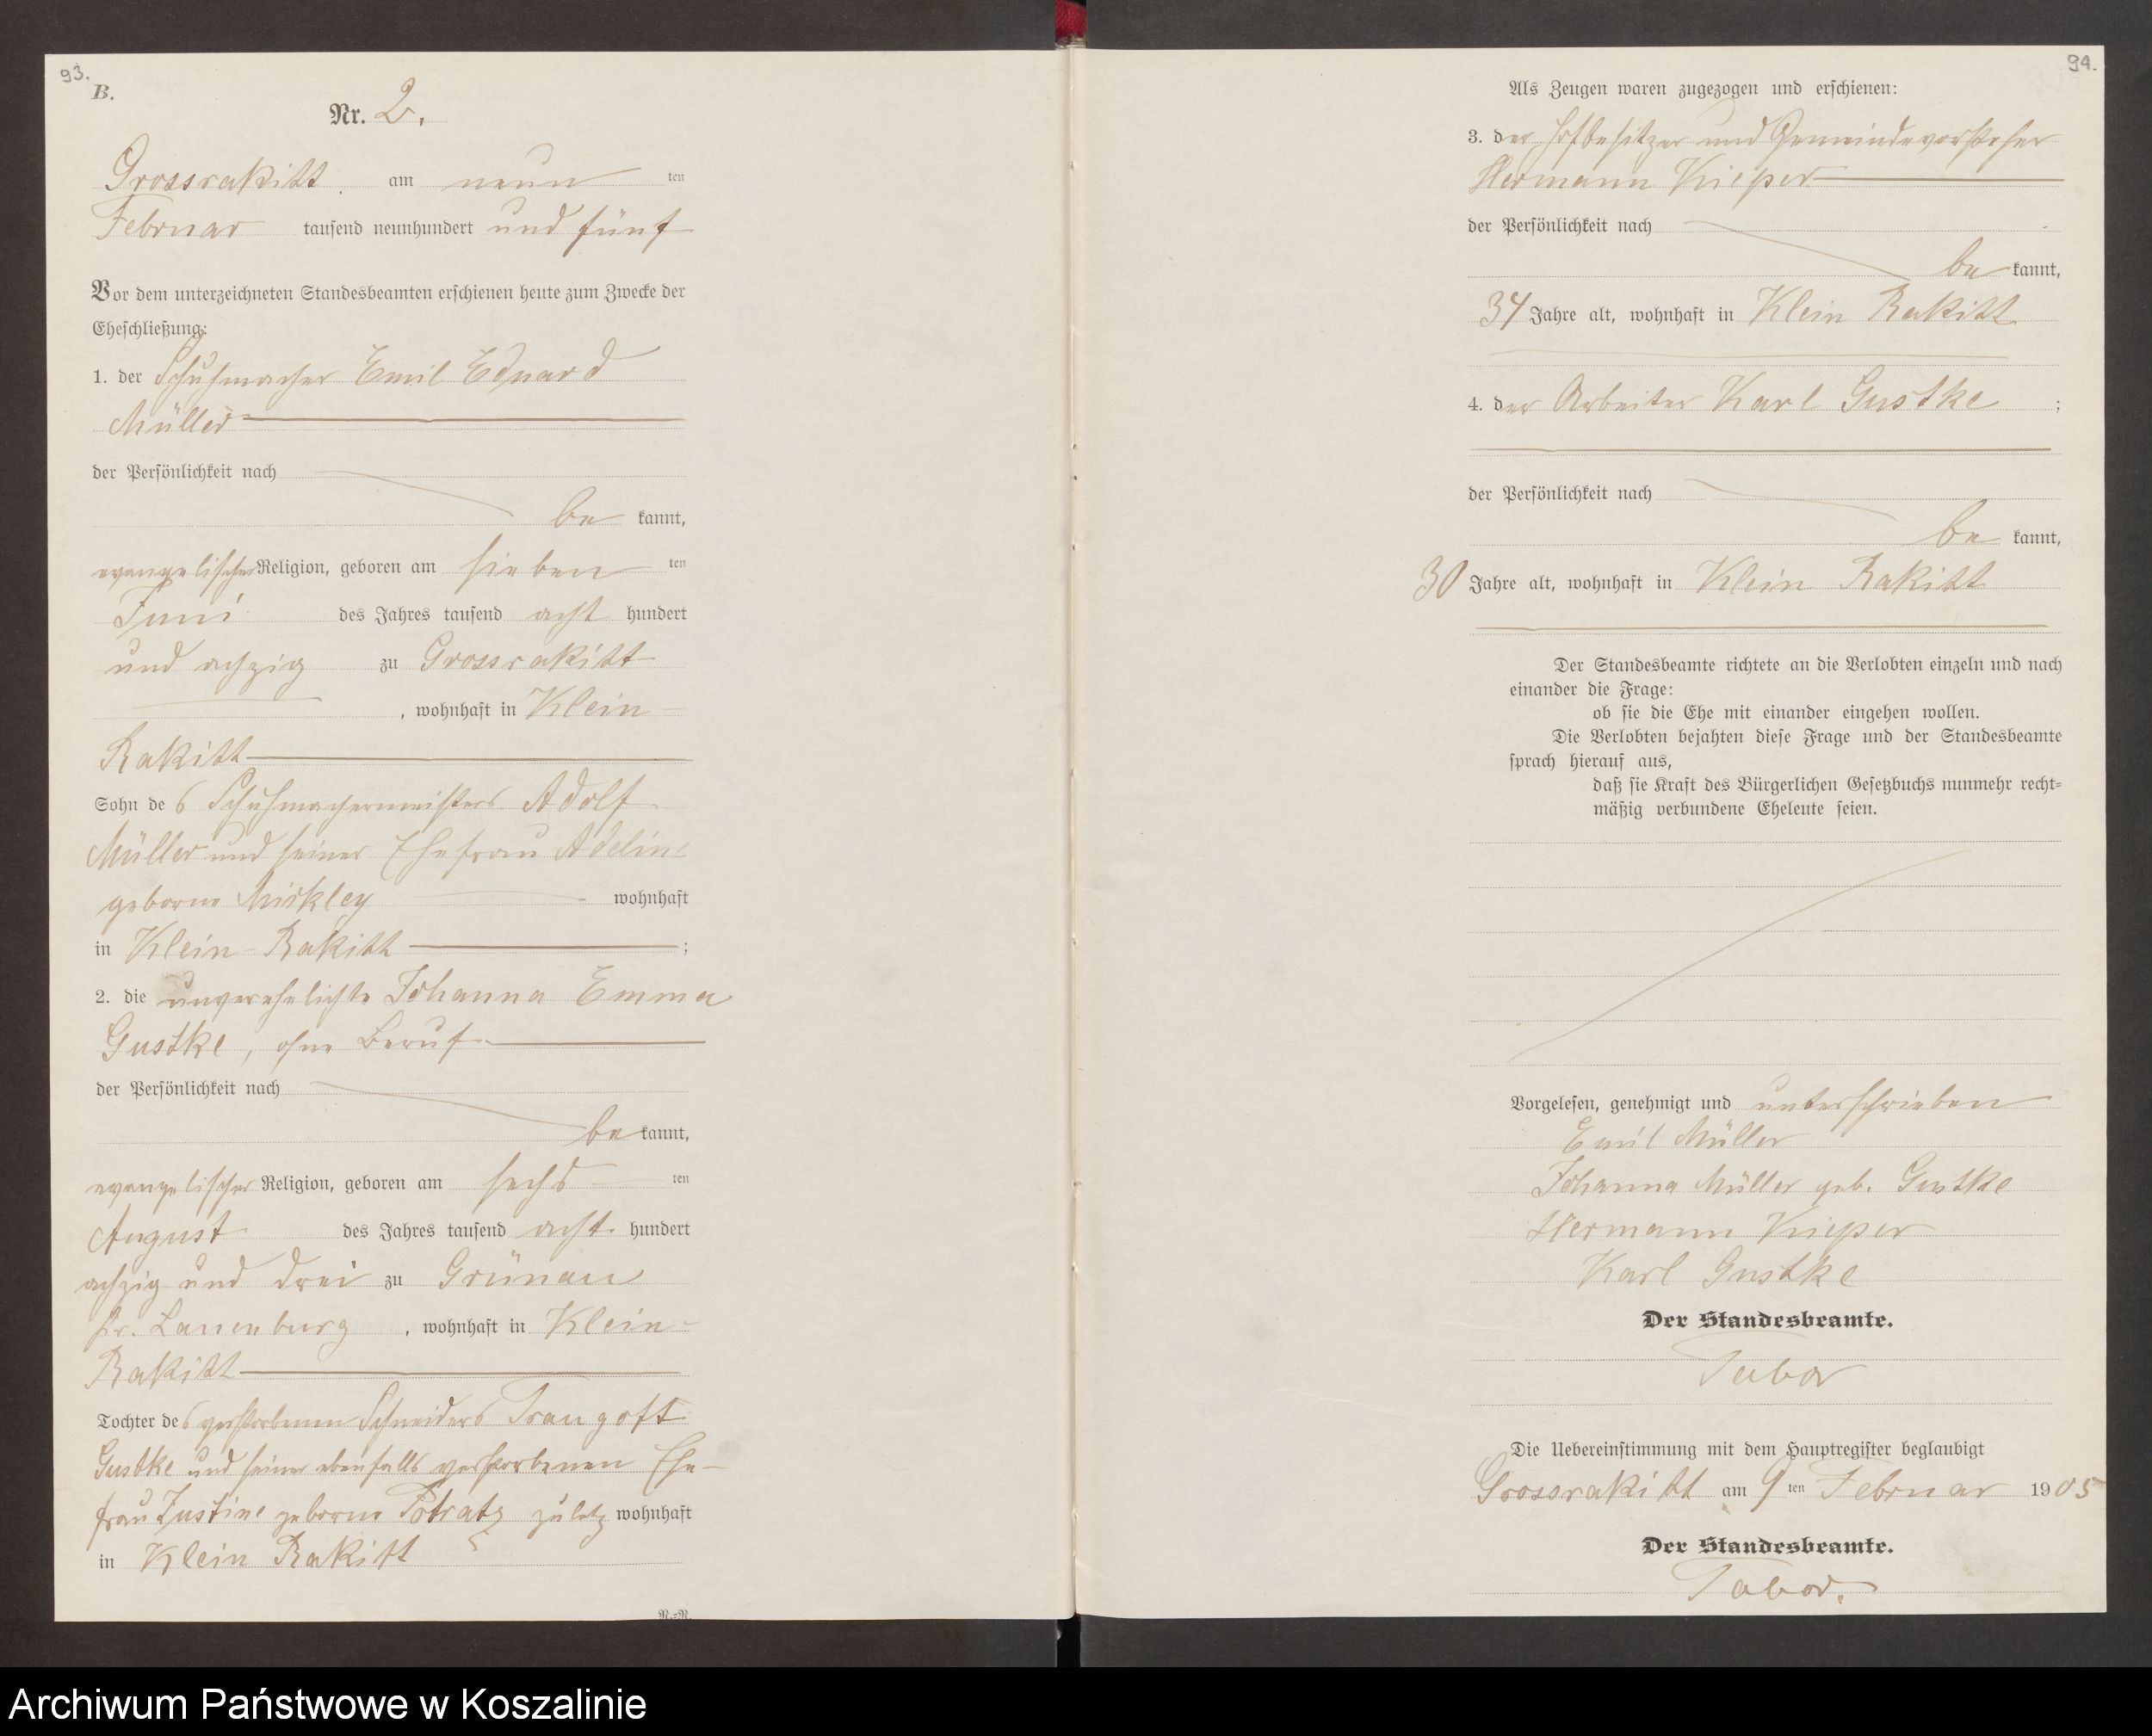 93.
B.
Nr. 2.
Grossrakitt, am neun ten
Februar tausend neunhundert und fünf
Vor dem unterzeichneten Standesbeamten erschienen heute zum Zwecke der
Eheschließung:
1. der Schuhmacher Emil Eduard
Müller
der Persönlichkeit nach
be kannt,
evangelischer Religion, geboren am sieben ten
Juni des Jahres tausend acht hundert
und achzig zu Grossrakitt
, wohnhaft in Klein
Rakitt
Sohn des Schuhmachermeisters Adolf
Müller und seiner Ehefrau Adeline
geborne wohnhaft
in Klein-Rakitt ;
2. die unverehelichte Johanna Emma
Gustke, ohne Beruf
der Persönlichkeit nach
be kannt,
evangelischer Religion, geboren am sechs ten
August des Jahres tausend acht hundert
achzig und drei zu Grünau
Kr. Lauenburg , wohnhaft in Klein-
Rakitt
Tochter des verstorbenen Schneiders Traugott
Gustke und seiner ebenfalls verstorbenen Ehe-
frau Justine geborne Potratz zuletz wohnhaft
in Klein Rakitt
N.-N.
94.
Als Zeugen waren zugezogen und erschienen:
3. der Hofbesitzer und Gemeindevorsteher
Hermann Kieper
der Persönlichkeit nach
be kannt,
34 Jahre alt, wohnhaft in Klein Rakitt
4. der Arbeiter Karl Gustke ;
der Persönlichkeit nach
be kannt,
30 Jahre alt, wohnhaft in Klein Rakitt
Der Standesbeamte richtete an die Verlobten einzeln und nach
einander die Frage:
ob sie die Ehe mit einander eingehen wollen.
Die Verlobten bejahten diese Frage und der Standesbeamte
sprach hierauf aus,
daß sie Kraft des Bürgerlichen Gesetzbuchs nunmehr recht=
mäßig verbundene Eheleute seien.
Vorgelesen, genehmigt und unterschrieben
Emil Müller
Johanna Müller geb. Gustke
Hermann Kieper
Karl Gustke
Der Standesbeamte.
Tabor
Die Uebereinstimmung mit dem Hauptregister beglaubigt
Grossrakitt am 9 ten Februar 1905
Der Standesbeamte.
Tabor.
Archiwum Państwowe w Koszalinie